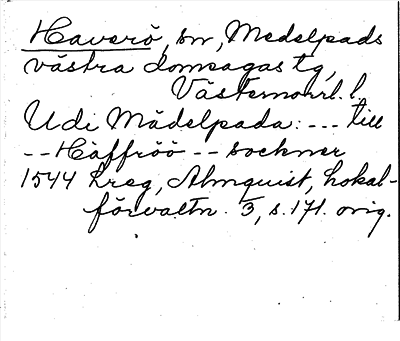 Haverö, sn, Medelpads
västra domsagas tg,
Västernorrl. l.
Udi Mädelpada: --- till
-- Häffröö -- sockner
1544 Lreg, Almquist, Lokal-
förvaltn. 3, s. 171. orig.